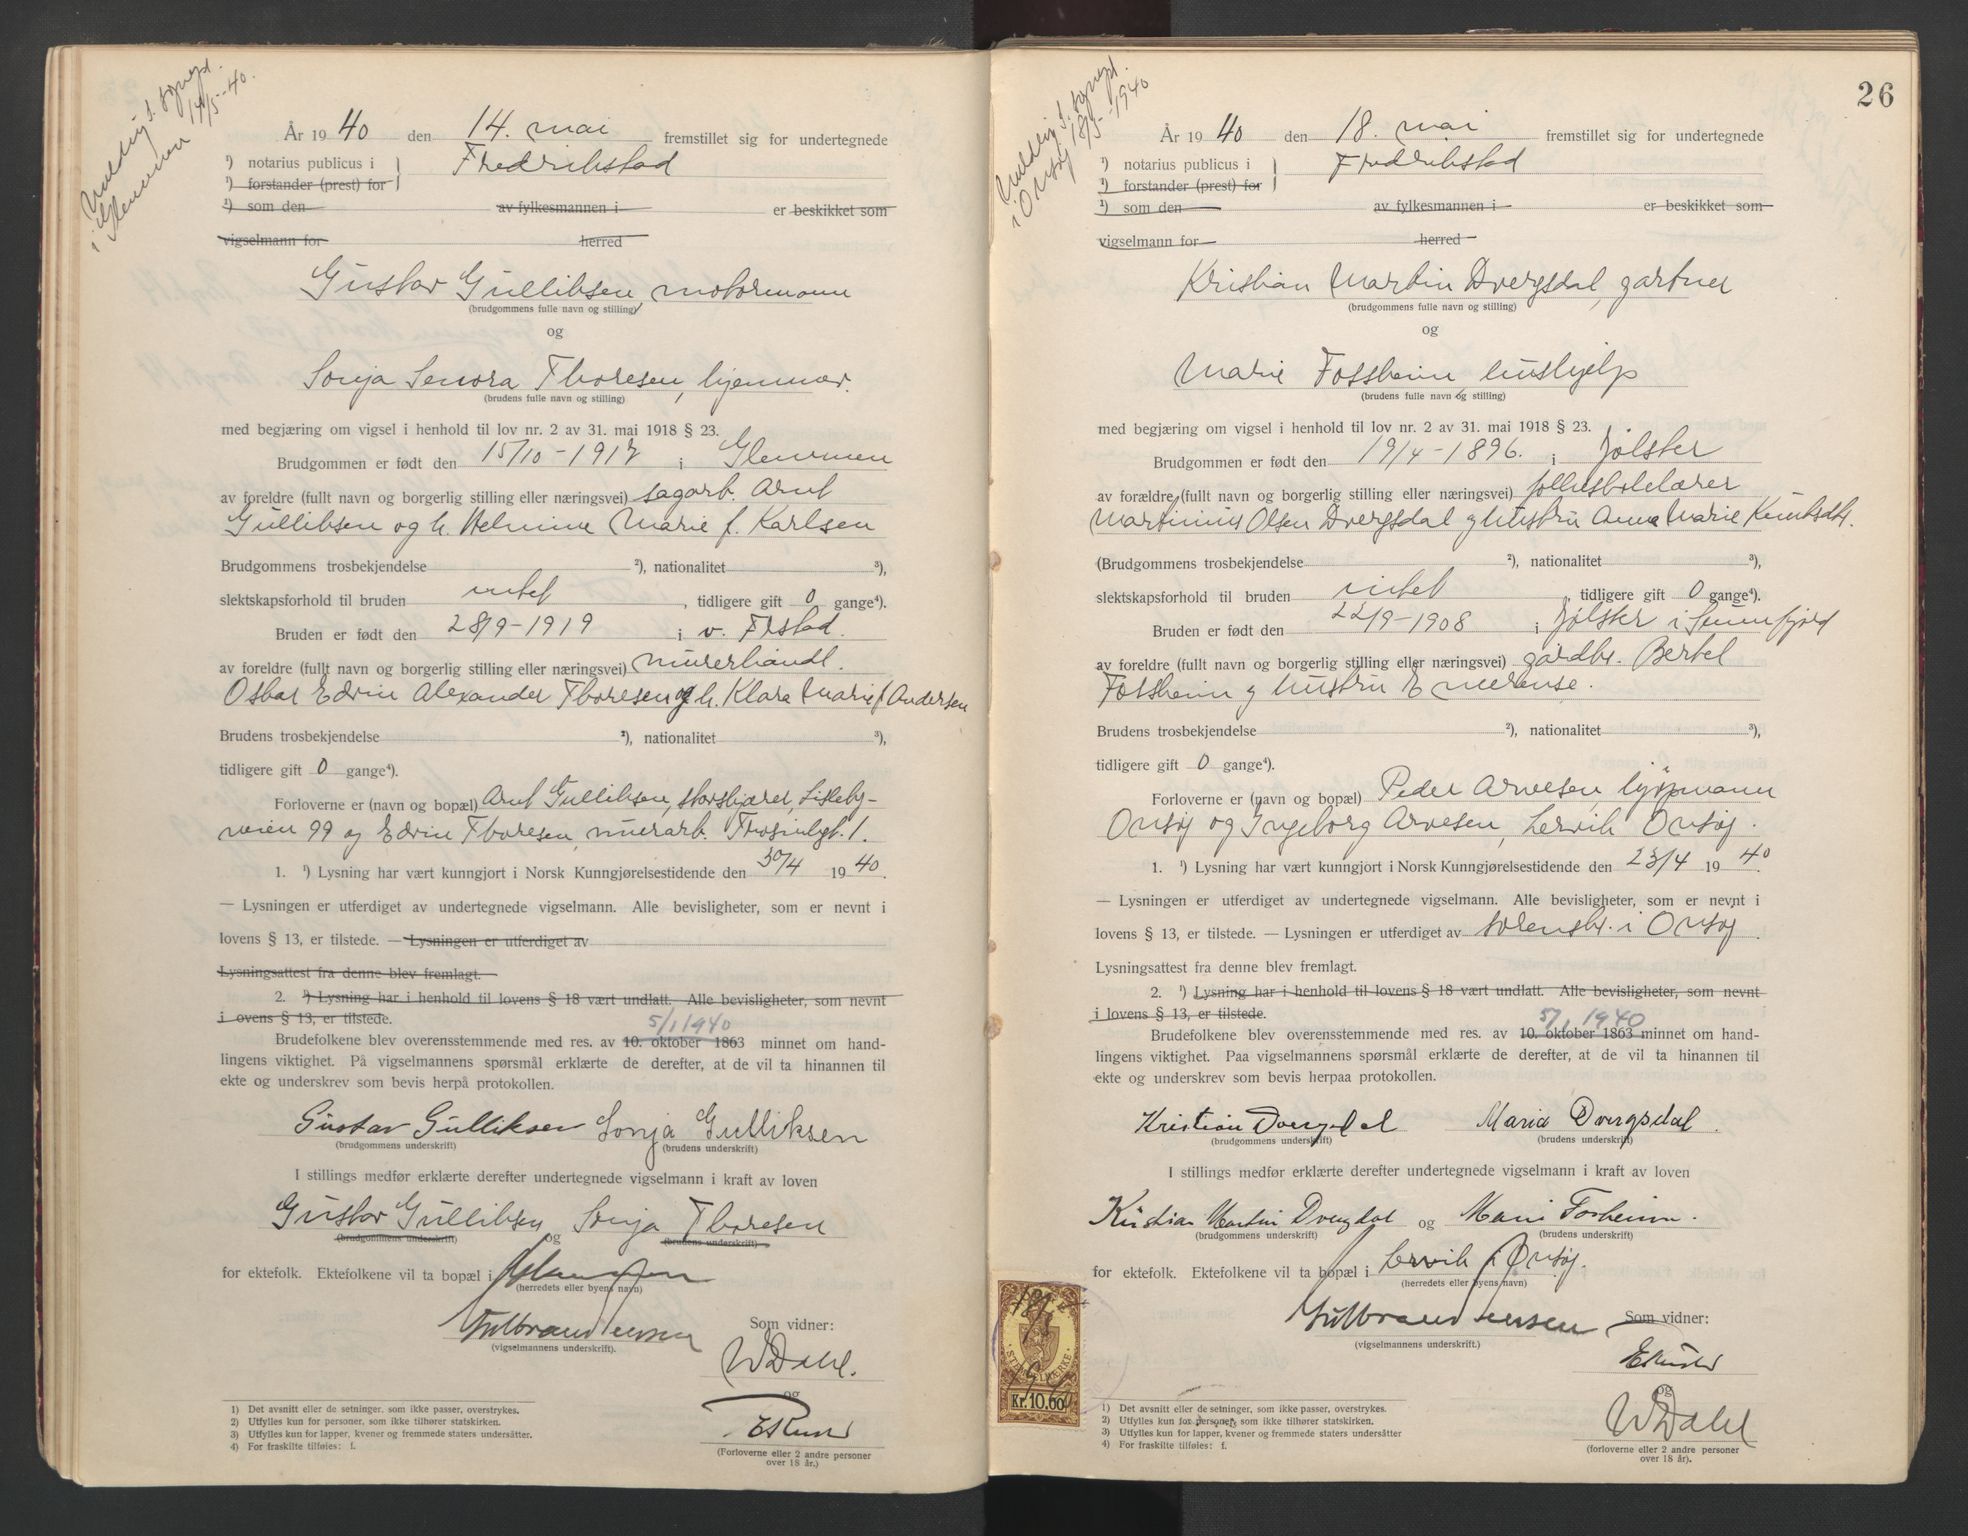 Melding s. sogneprest
i Glemmen 14/5-40.
År 1940 den 14. mai fremstillet sig for undertegnede
¹) notarius publicus i Fredrikstad
¹) forstander (prest) for
¹) som den av fylkesmannen i er beskikket som
vigselmann for herred
Gustav Gulliksen, motormann
(brudgommens fulle navn og stilling)
og
Sonja Senora Thoresen, hjemmevær.
(brudens fulle navn og stilling)
med begjæring om vigsel i henhold til lov nr. 2 av 31. mai 1918 § 23.
Brudgommen er født den 15/10-1917 i Glemmen
av foreldre (fullt navn og borgerlig stilling eller næringsvei) sagarb. Arnt
Gulliksen og h. Helmine Marie f. Karlsen
Brudgommens trosbekjendelse ²), nationalitet ³),
slektskapsforhold til bruden intet, tidligere gift 0 gange⁴).
Bruden er født den 28/9-1919 i v. Frstad.
av foreldre (fullt navn og borgerlig stilling eller næringsvei) murerhåndl.
Oskar Edvin Alexander Thoresen og h. Klara Marie f. Andersen
Brudens trosbekjendelse ²), nationalitet ³),
tidligere gift 0 gange⁴).
Forloverne er (navn og bopæl) Arnt Gulliksen, storskjærer, Lisleby-
veien 99 og Edvin Thoresen, murarb. 1.
1. ¹) Lysning har vært kunngjort i Norsk Kunngjørelsestidende den 30/4 1940.
— Lysningen er utferdiget av undertegnede vigselmann. Alle bevisligheter, som er nevnt i
lovens § 13, er tilstede. — Lysningen er utferdiget av
Lysningsattest fra denne blev fremlagt.
2. ¹) Lysning har i henhold til lovens § 18 vært undlatt. Alle bevisligheter, som nevnt
i ovens § 13, er tilstede.
5/1 1940
Brudefolkene blev overensstemmende med res. av 10. oktober 1863 minnet om hand-
lingens viktighet. På vigselmannens spørsmål erklærte de derefter, at de vil ta hinannen til
ekte og underskrev som bevis herpå protokollen.
Gustav Gulliksen Sonja Gulliksen
(brudgommens underskrift) (brudens underskrift)
I stillings medfør erklærte derefter undertegnede vigselmann i kraft av loven
Gustav Gulliksen Sonja Thoresen
(brudgommens underskrift) og (brudens underskrift)
for ektefolk. Ektefolkene vil ta bopæl i Glemmen
(herredets eller byens navn)
Gulbrand Jensen Som vidner:
(vigselmannens underskrift).
W Dahl.
og
E Rund
(Forloverne eller 2 andre personer
over 18 år.)
1) Det avsnitt eller de setninger. som ikke passer, overstrykes.
2) Utfylles kun for personer, som ikke tilhører statskirken.
3) Utfylles kun for lapper, kvener og fremmede staters undersåtter.
4) For fraskilte tilføies: f.
26
Melding s. sognepr.
i Onsøy 18/5-1940
År 1940 den 18. mai fremstillet sig for undertegnede
¹) notarius publicus i Fredrikstad
¹) forstander (prest) for
¹) som den av fylkesmannen i er beskikket som
vigselmann for herred
Kristian Martin Dvergsdal, gartner
(brudgommens fulle navn og stilling)
og
Marie Fossheim, hushjelp
(brudens fulle navn og stilling)
med begjæring om vigsel i henhold til lov nr. 2 av 31. mai 1918 § 23.
Brudgommen er født den 19/4-1896. i Jølster
av forældre (fullt navn og borgerlig stilling eller næringsvei) folkeskolelærer
Martinius Olsen Dvergsdal og hustru Anna Marie Knutsdtr.
(Brudgommens trosbekjendelse ²), nationalitet ³),
slektskapsforhold til bruden intet, tidligere gift 0 gange⁴).
Bruden er født den 22/9-1908 i Jølster i Sunnfjord
av foreldre (fullt navn og borgerlig stilling eller næringsvei) gårdbr. Bertel
Fossheim og hustru Emerense.
Brudens trosbekjendelse ²), nationalitet ³),
tidligere gift 0 gange⁴).
Forloverne er (navn og bopæl) Peder Arvesen,
Onsøy og Ingeborg Arvesen, Lervik Onsøy.
1. ¹) Lysning har vært kunngjort i Norsk Kunngjørelsestidende den 23/4 1940.
— Lysningen er utferdiget av undertegnede vigselmann. Alle bevisligheter, som er nevnt i
lovens § 13, er tilstede. — Lysningen er utferdiget av sorenskr. i Onsøy.
Lysningsattest fra denne blev fremlagt.
2. ¹) Lysning har i henhold til lovens § 18 vært undlatt. Alle bevisligheter, som nevnt
i lovens § 13, er tilstede.
5/1 1940
Brudefolkene blev overensstemmende med res. av 10. oktober 1863 minnet om hand-
lingens viktighet. Paa vigselmannens spørsmål erklærte de derefter, at de vil ta hinannen til
ekte og underskrev som bevis herpaa protokollen.
Kristian Dvergsdal Marie Dvergsdal.
(brudgommens underskrift) (brudens underskrift)
I stillings medfør erklærte derefter undertegnede vigselmann i kraft av loven
Kristian Martin Dvergsdal og Marie Fossheim.
(brudgommens underskrift) (brudens underskrift)
for ektefolk. Ektefolkene vil ta bopæl i Lervik i Onsøy.
(herredets eller byens navn)
Gulbrand Jensen Som vidner:
(vigselmannens underskrift).
E Rund
og
W Dahl
(forloverne eller 2 andre personer
over 18 år).
STEMPELMERKE
Kr. 10.60
1) Det avsnitt eller de setninger, som ikke passer, overstrykes.
2) Utfylles kun for personer, som ikke tilhører statskirken.
3) Utfylles kun for lapper, kvener og fremmede staters undersåtter
4) For fraskilte tilføies: f.